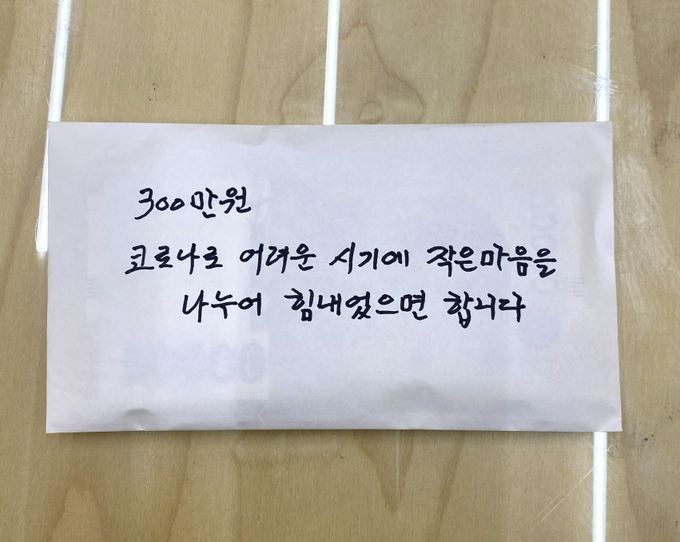 300만원
코로나로 어려운 시기에 작은마음을
나누어 힘내었으면 합니다